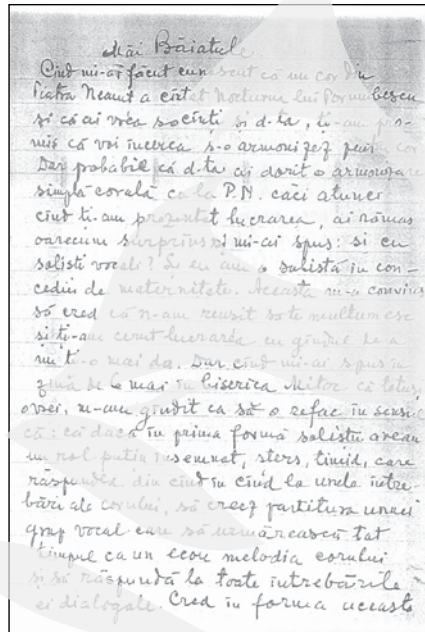 Măi Băiatule
Cînd mi-ai făcut cunoscut că un cor din
Piatra Neamț a cîntat Nocturne lui Porumbescu
și că ai vrea so cînți și d-ta, ți-am pro-
mis că voi încerca s-o armonizez pen cor
Dar probabil că d-ta ai dorit o armonizare
simplă corală ca la P.N. căci atunci
cînd ți-am prezentat lucrarea, ai rămas
oarecum surprins și mi-ai spus: și cu
soliști vocali? Și eu am o solistă în con-
cediu de maternitate. Aceasta m-a convins
să cred că n-am reușit să te mulțumesc
și ți-am cerut lucrarea cu gîndul de a
nu ți-o mai da. Dar cînd mi-ai spus în
ziua de 6 mai în biserica Mitor că totuși
o vei, m-am gîndit ca să o refac în sensul
că: că dacă în prima formă soliștii aveau
un rol puțin însemnat, șters, timid, care
răspundea din cînd în cînd la unele între
bări ale corului, să creez partitura unui
grup vocal care să urmărească tot
timpul ca un ecou melodia corului
și să răspundă la toate întrebările
ei dialogale. Cred în forma aceasta